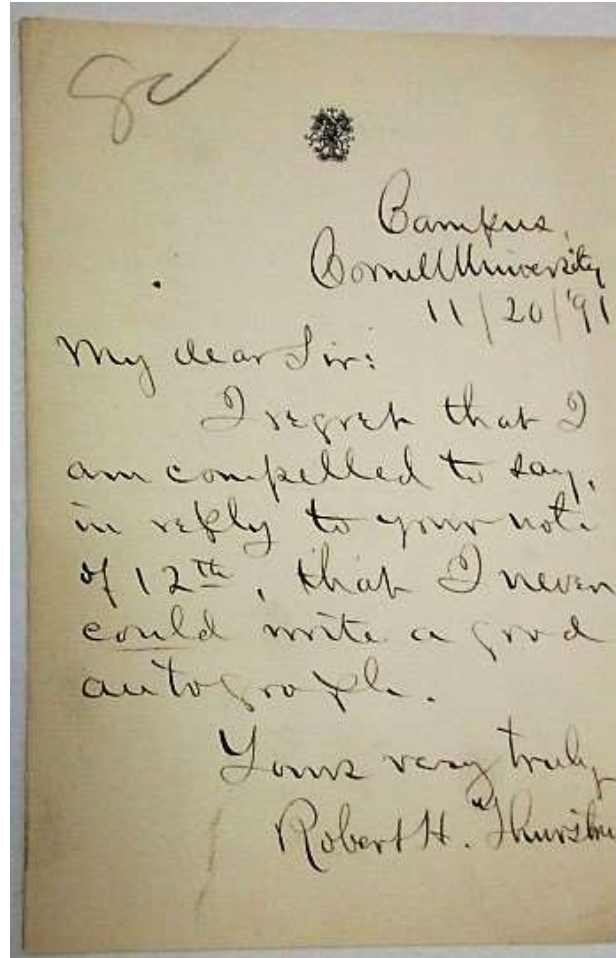 Campus,
Cornell University
11/20/'91
My dear Sir:
I regret that I
am compelled to say,
in reply to your note
of 12th, that I never
could write a good
autograph.
Yours very truly
Robert H. Thurston